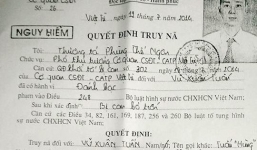 Cơ quan CSĐT
Số 26
NGUY HIỂM
Việt Trì, ngày 12 tháng 7 năm 2014
QUYẾT ĐỊNH TRUY NÃ
Tôi: Thượng tá Phùng Thị Ngân
Chức vụ: Phó thủ trưởng cơ quan CSĐT - CATP Việt Trì
Căn cứ
Cơ quan CSĐT - CATP Việt Trì Vũ Xuân Tuấn
đã có hành vi Đánh bạc
phạm vào Điều 248 Bộ luật hình sự nước CHXHCN Việt Nam;
Sau khi xác định: Bị can bỏ trốn
Căn cứ các Điều 34, 82, 161, 169, 187, 256 và 260 Bộ luật tố tụng hình
sự nước CHXHCN Việt Nam,
QUYẾT ĐỊNH:
Truy nã đối với: VŨ XUÂN TUẤN, Nam/Nữ; Tên gọi khác: Tuấn "Hưng"